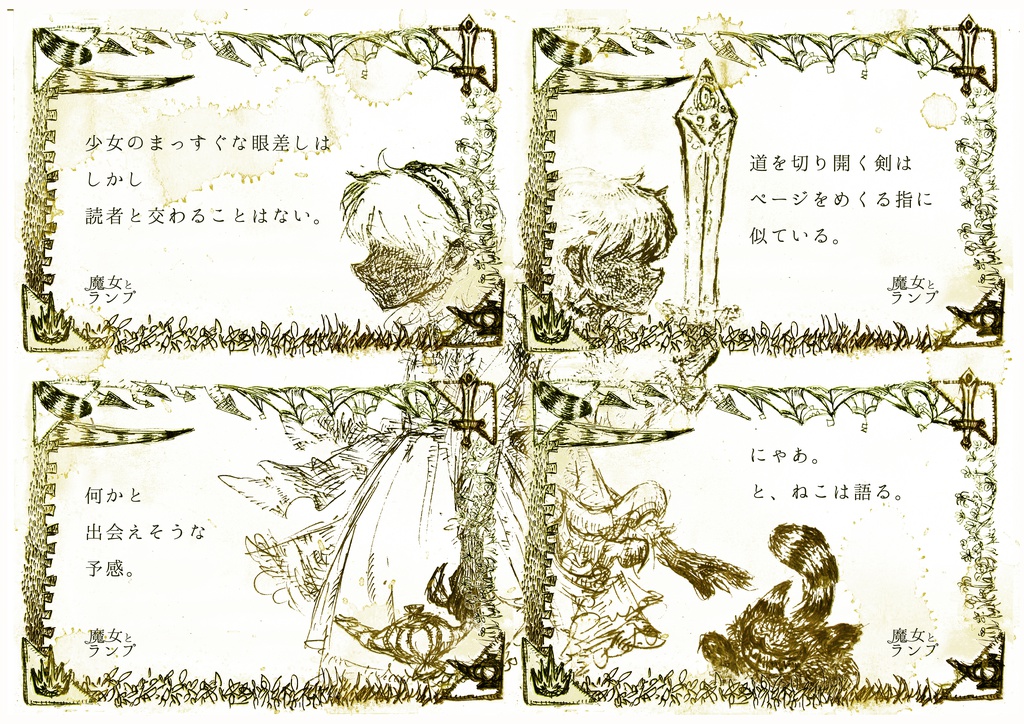 少女のまっすぐな眼差しは
しかし
読者と交わることはない。
魔女と
ランプ
道を切り開く剣は
ページをめくる指に
似ている。
魔女と
ランプ
何かと
出会えそうな
予感。
魔女と
ランプ
にゃあ。
と、ねこは語る。
魔女と
ランプ